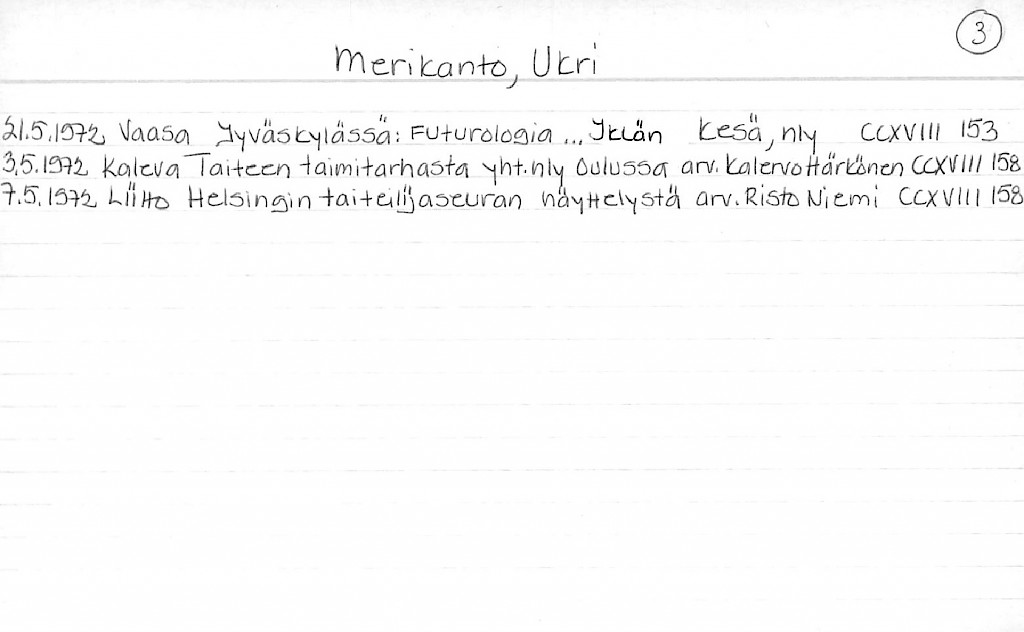 3
Merikanto, Ukri
21.5.1972 Vaasa Jyväskylässä: Futurologia ... JKLän Kesä, nly CCXVIII 153
3.5.1972 Kaleva Taiteen taimitarhasta yht.nly Oulussa arv. Kalervo Härkönen CCXVIII 158
7.5.1972 Liitto Helsingin taiteilijaseuran näyttelystä arv. Risto Niemi CCXVIII 158